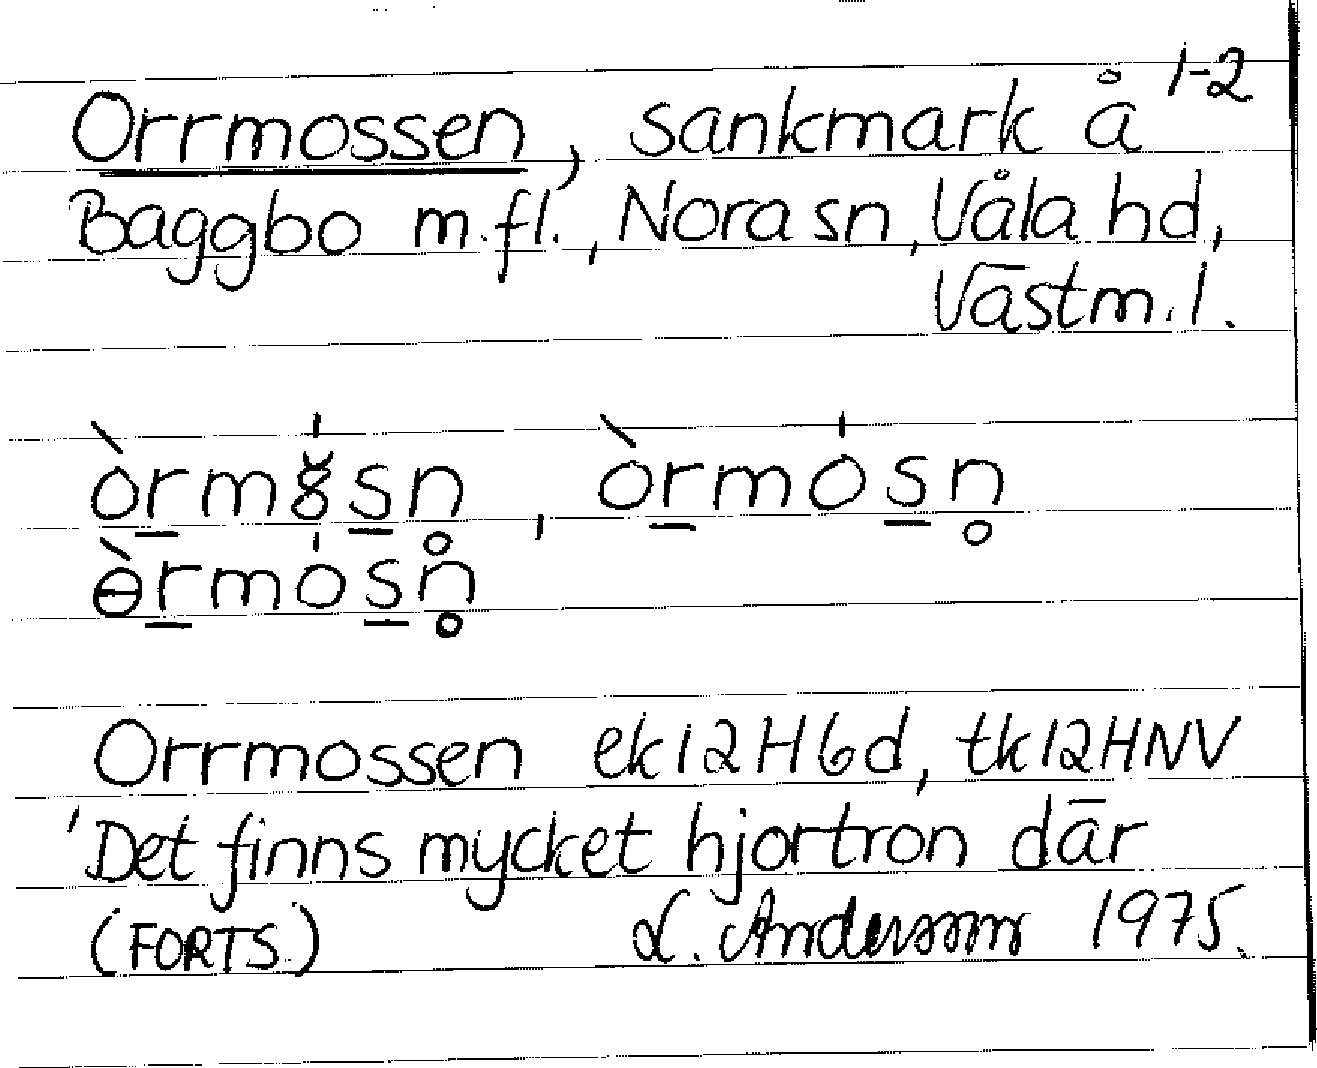 1-2
Orrmossen, sankmark å
Baggbo m.fl., Nora sn, Våla hd,
Västm. l.
òrmo̊sn̥ , òrmósn̥
ɵ̀rmósn̥
Orrmossen ek12H6d, tk12HNV
'Det finns mycket hjortron där
(FORTS.) L. Andersson 1975.